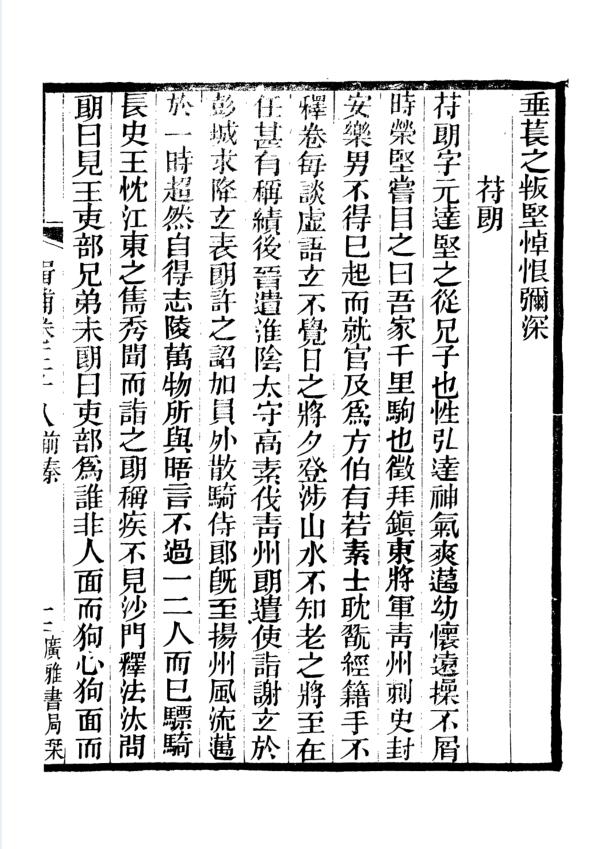 垂萇之叛堅悼恨彌深
苻朗
苻朗字元達堅之從兄子也性弘達神氣爽邁幼懷遠操不屑
時榮堅嘗目之曰吾家千里駒也徵拜鎮東將軍青州刺史封
安樂男不得已起而就官及爲方伯有若素士耽翫經籍手不
釋卷每談虛語玄不覺日之將夕登涉山水不知老之將至在
任甚有稱績後晉遣淮陰太守高素伐青州朗遣使詣謝玄於
彭城求降玄表朗許之詔加員外散騎侍郎旣至揚州風流邁
於一時超然自得志陵萬物所與晤言不過一二人而已驃騎
長史王忱江東之雋秀聞而詣之朗稱疾不見沙門釋法汰問
朗曰見王吏部兄弟未朗曰吏部爲誰非人面而狗心狗面而
卷三十八前秦
廣雅書局栞